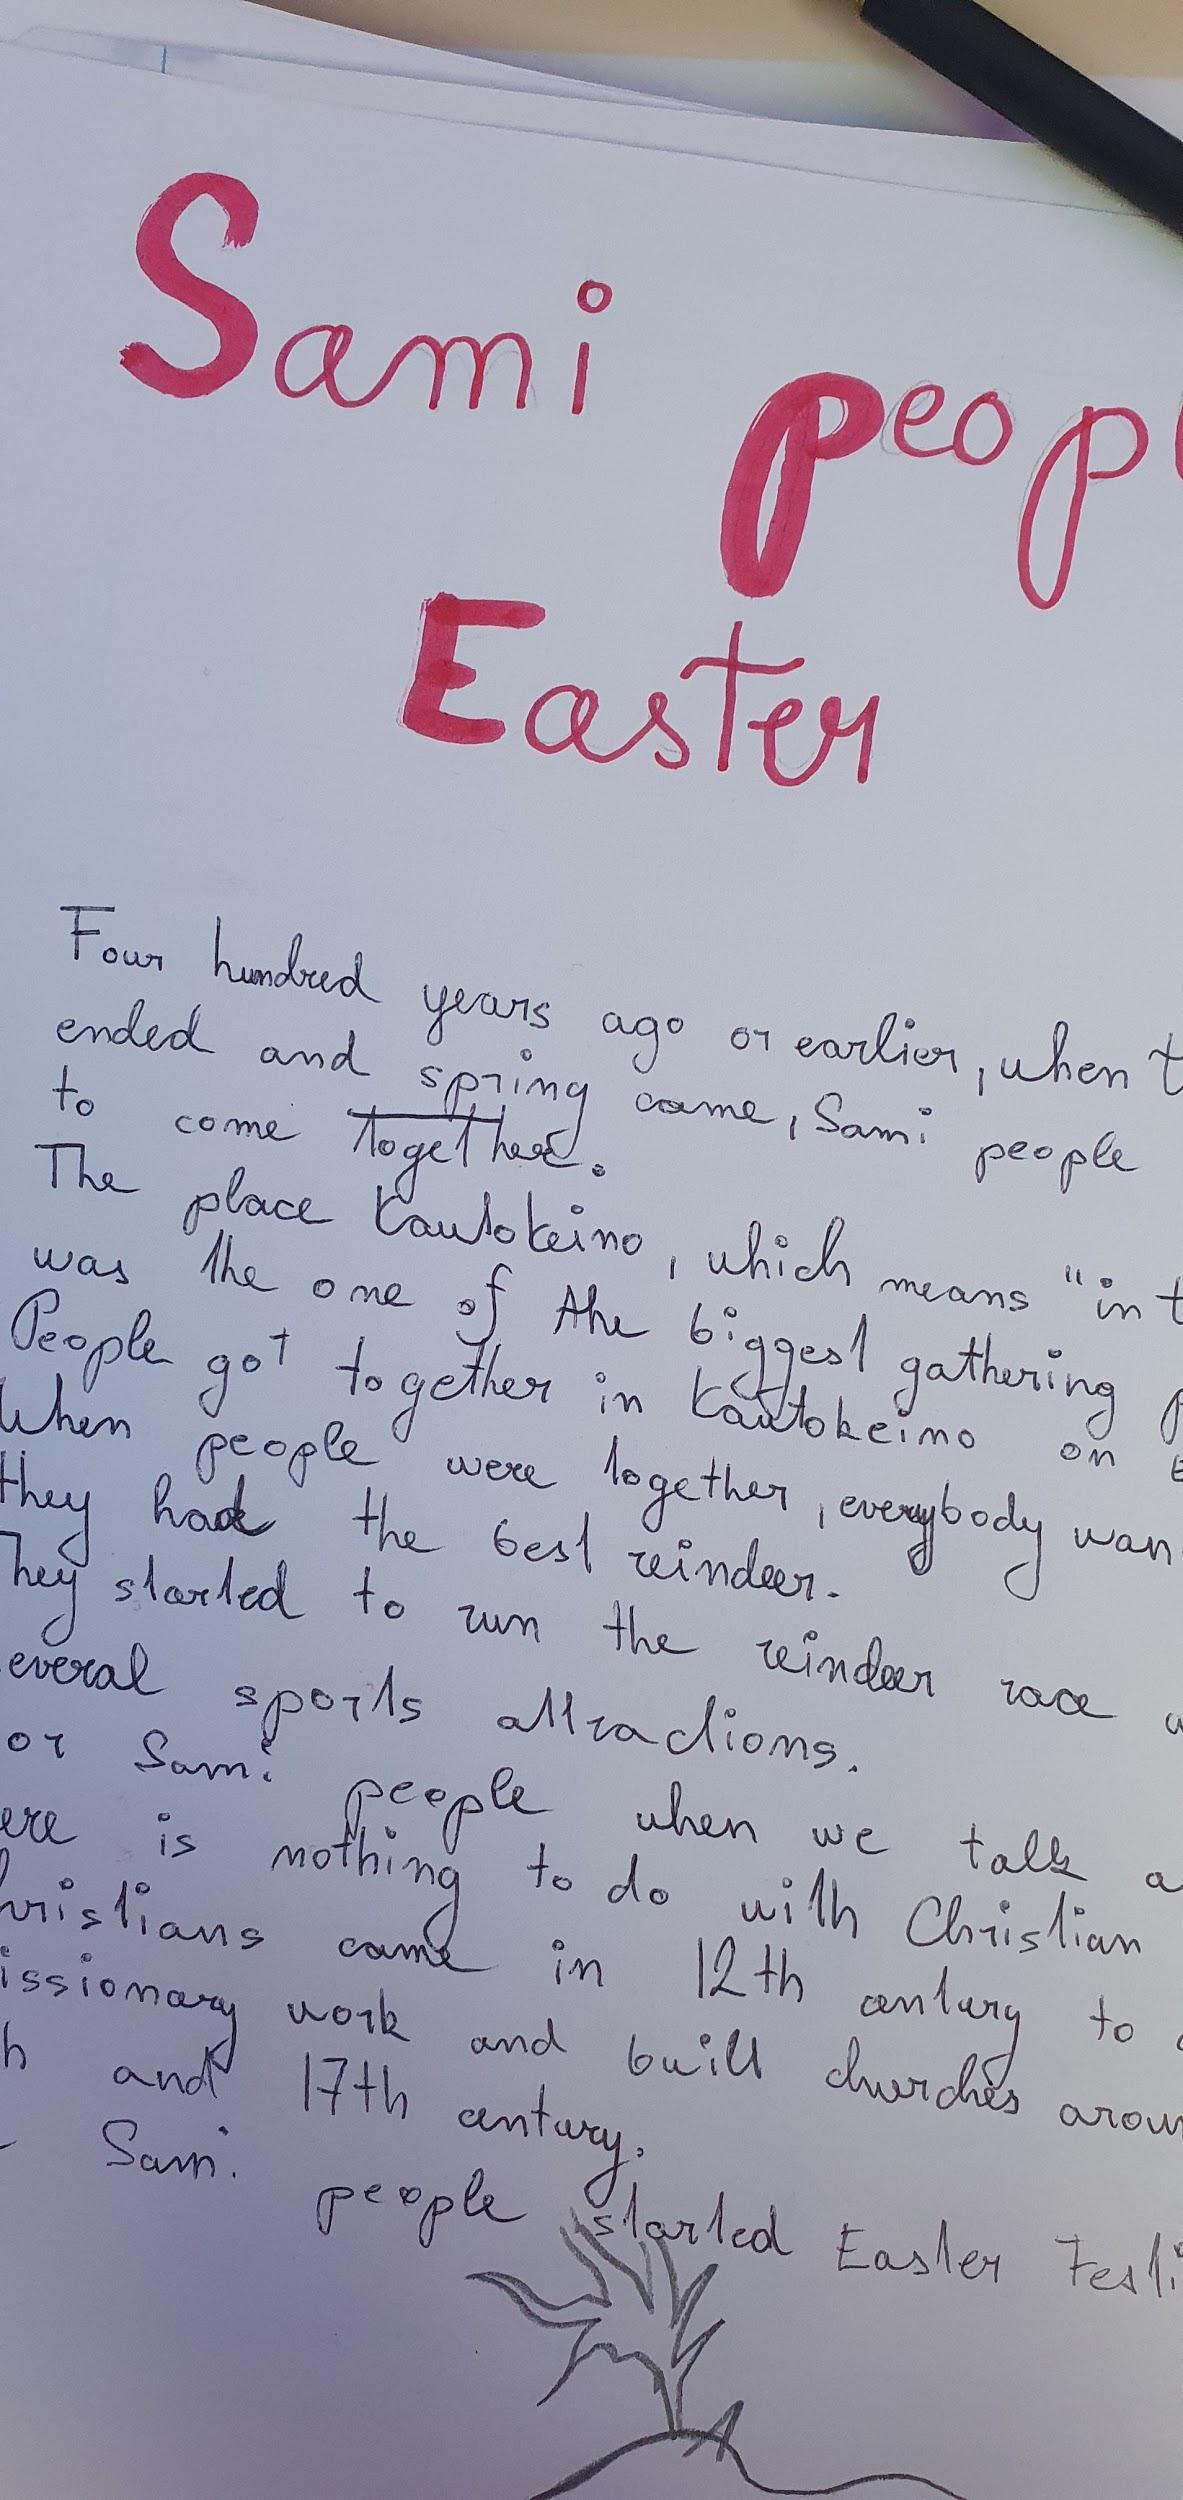 Sami peopl
Easter
Four hundred years ago or earlier, when t
ended and spring came, Sami people
to come together.
The place Kautokeino, which means "in t
was the one of the biggest gathering p
People got together in Kautokeino on E
When people were together, everybody wan
they had the best reindeer.
They started to run the reindeer race a
everal sports attractions.
or Sami people when we talk a
ere is nothing to do with Christian
hristians came in 12th century to
issionary work and built churches arou
h and 17th century.
Sami people started Easter Festi